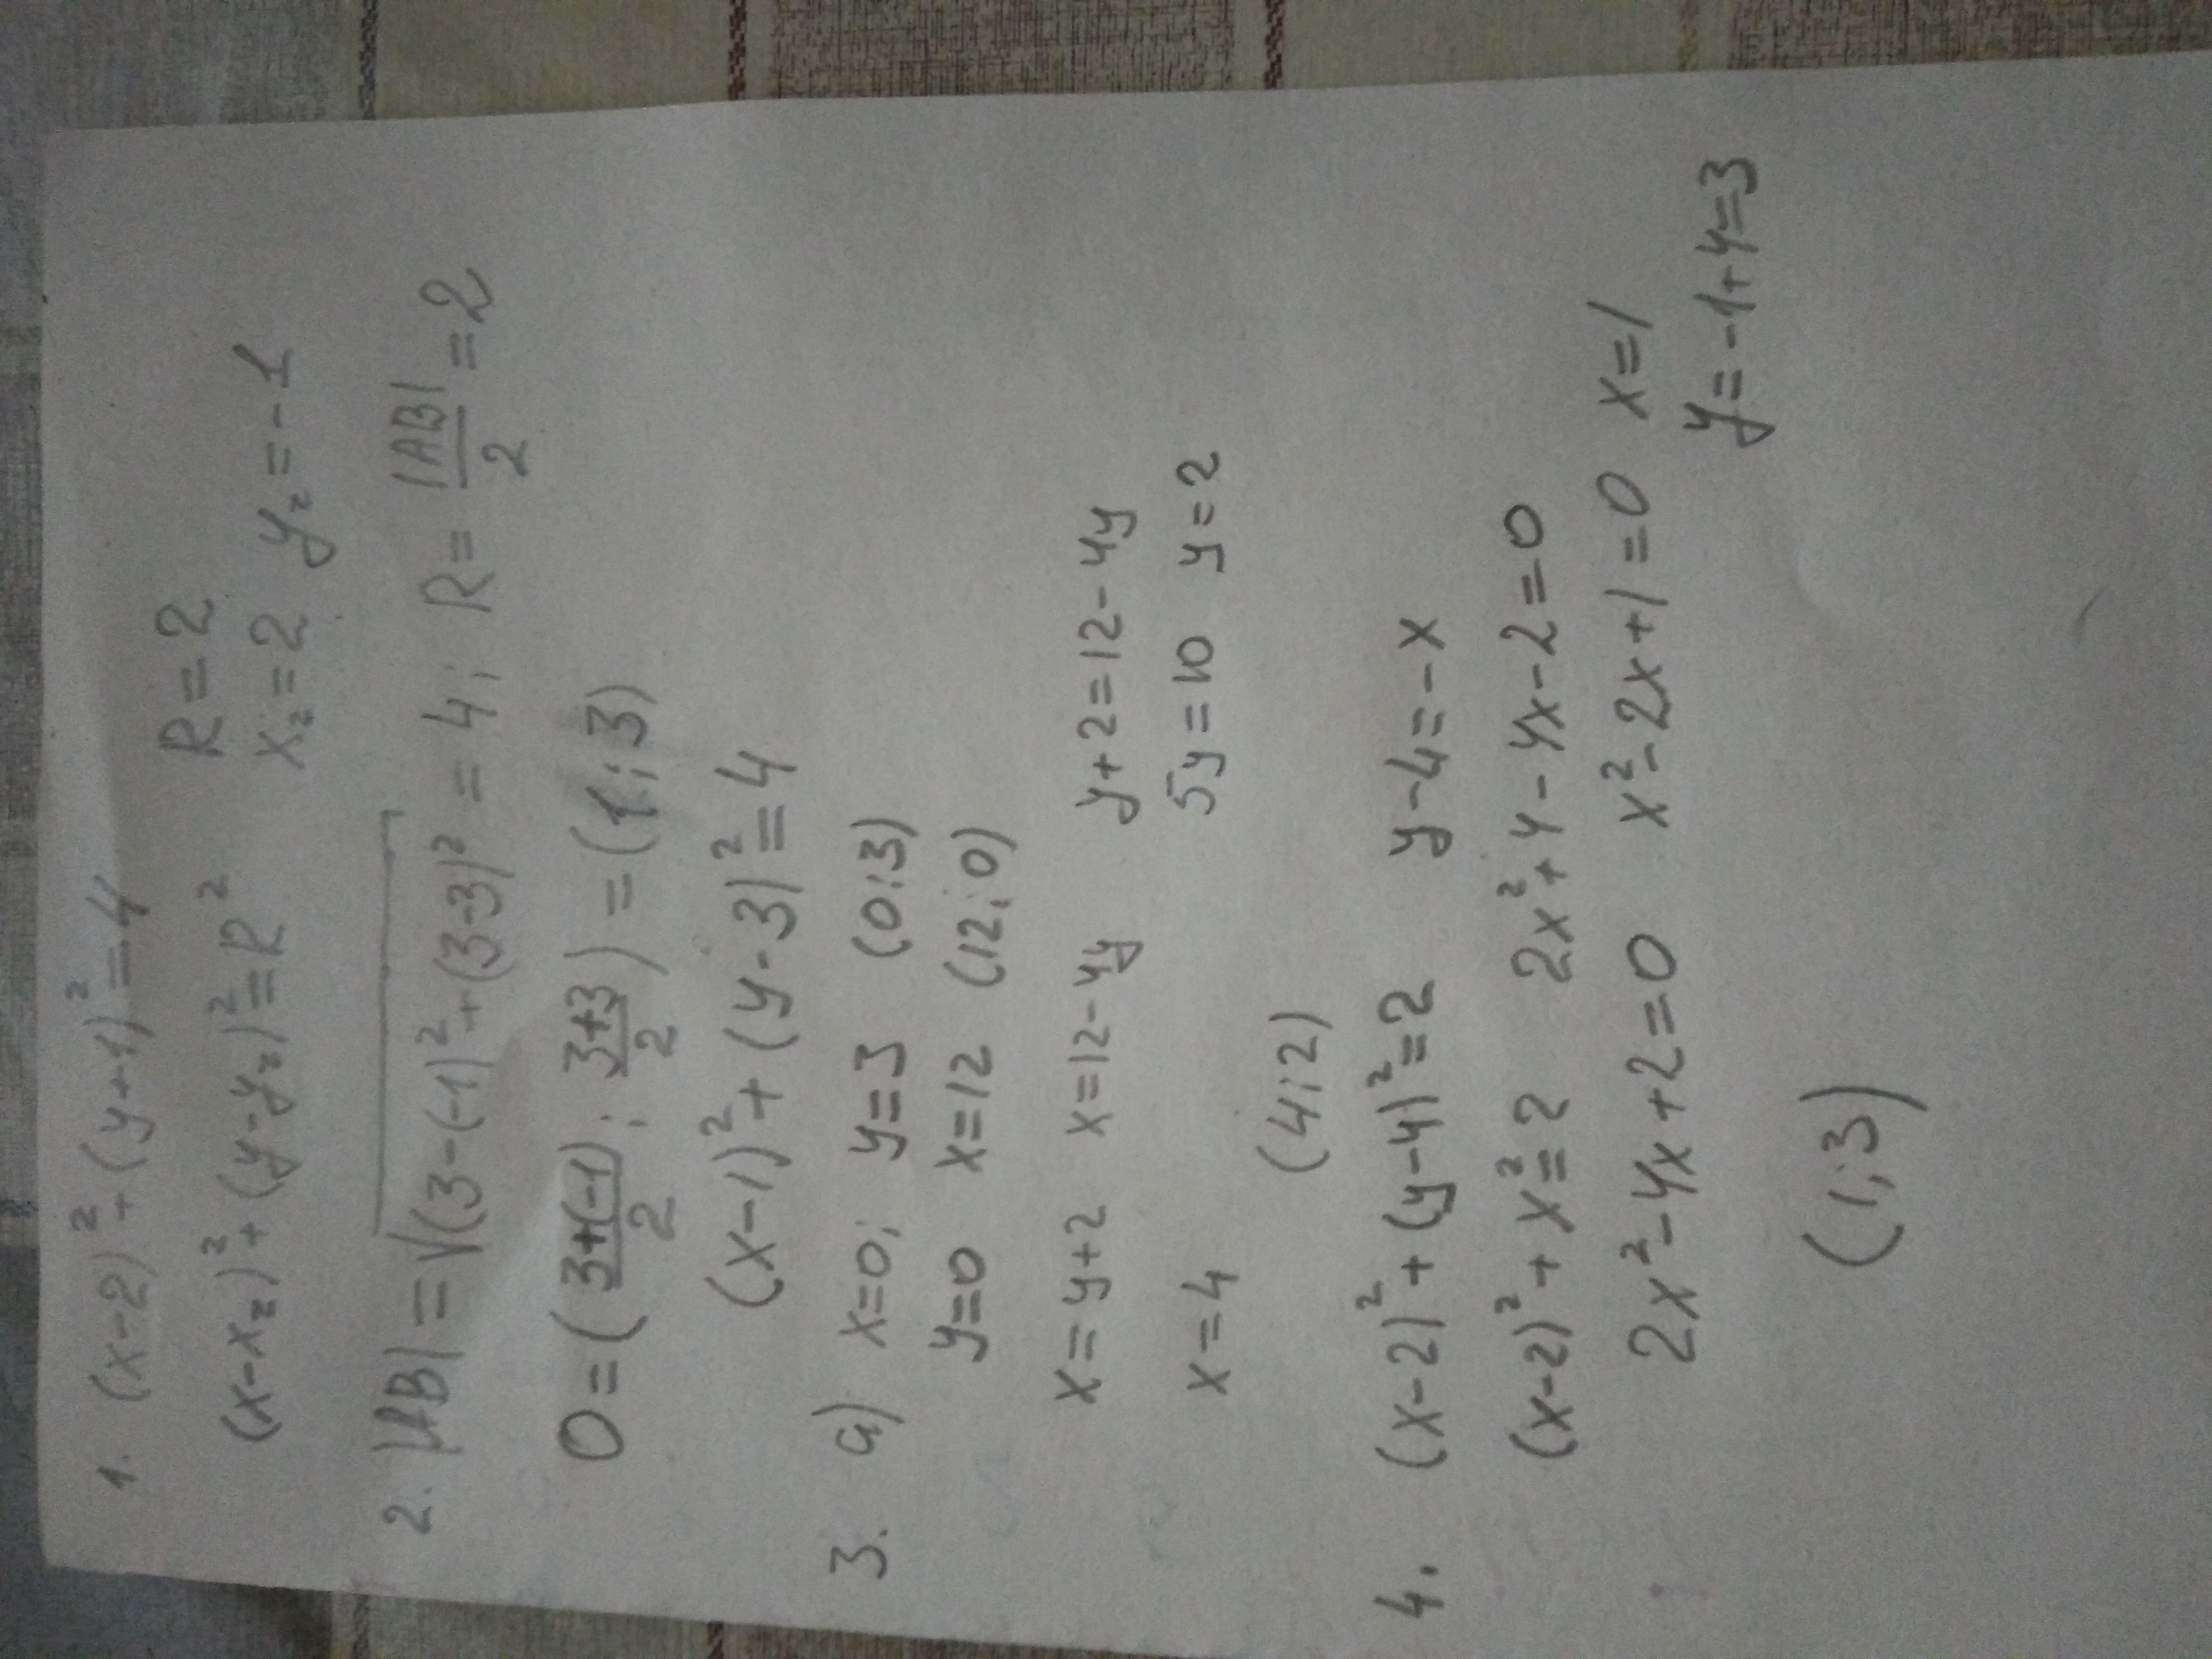 1. (x-2)²+(y+1)²=4
(x-x₂)²+(y-y₂)²=R² R=2
x₂=2 y₂=-1
2. |AB|=√(3-(-1)²+(3-3)² =4; R=|AB|/2=2
O=(3+(-1)/2; 3+3/2)=(1;3)
(x-1)²+(y-3)²=4
3. a) x=0; y=3 (0;3)
y=0 x=12 (12;0)
x=y+2 x=12-4y y+2=12-4y
x=4 5y=10 y=2
(4;2)
4. (x-2)²+(y-4)²=2 y-4=-x
(x-2)²+x²=2 2x²+4-4x-2=0
2x²-4x+2=0 x²-2x+1=0 x=1
y=-1+4=3
(1;3)